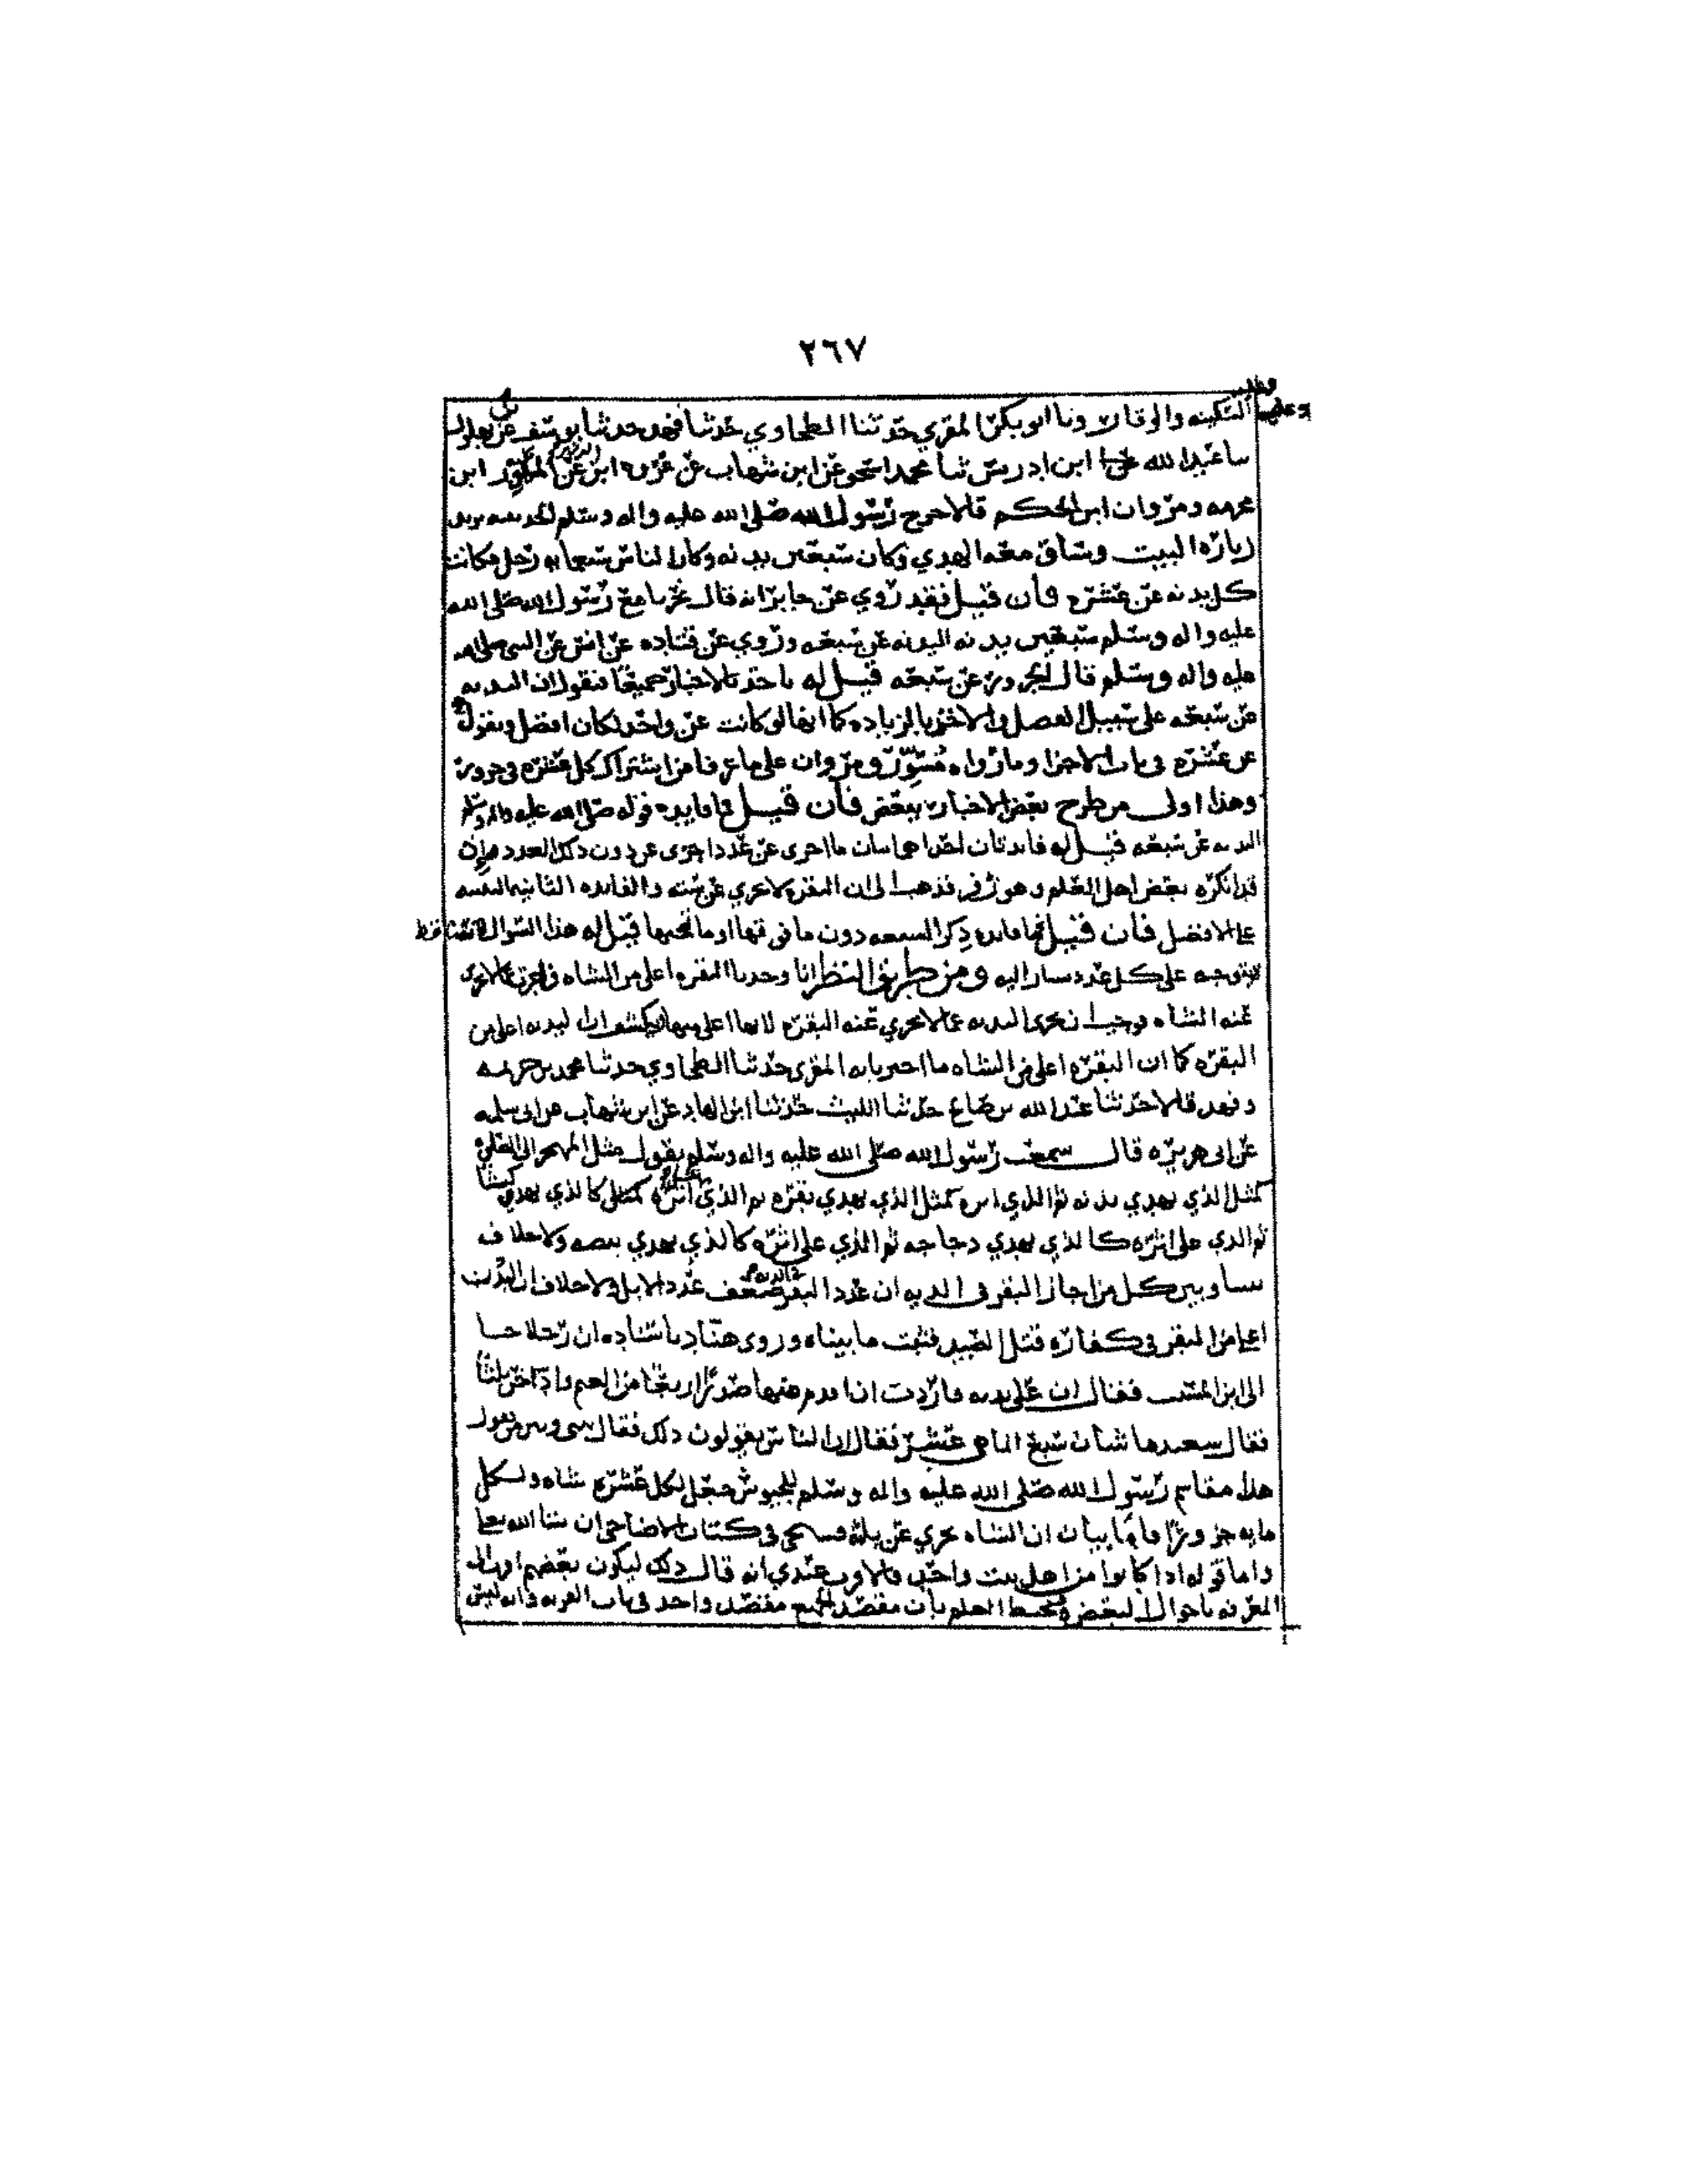 ٢٦٧
السكينه والوقار ونا ابو بكر المقري حدثنا الطحاوي حدثنا فهد حدثنا يوسف بن بهلول
نا عبد الله ابن ادريس ثنا محمد اسحق عن ابن شهاب عن عروه ابن الزبير عن المسور ابن
مخرمه ومروان ابن الحكم قالا خرج رسول الله صلى الله عليه واله وسلم الحديبيه يريد
زياره البيت وساق معه الهدي وكان سبعين بدنه وكان الناس سبعمايه رجل فكانت
كل بدنه عن عشره فأن قيل فقد روي عن جابر انه قال نحرنا مع رسول الله صلى الله
عليه واله وسلم سبعين بدنه البدنه عن سبعه وروي عن قتاده عن انس عن النبي صلى الله
عليه واله وسلم قال الجزور عن سبعه قيل له ناخذ بالاخبار جميعًا فنقول ان البدنه
عن سبعه على سبيل الفضل والاخذ بالزياده كما انها لو كانت عن واحد لكان افضل ونقول
عن عشره في باب الاجزا وما رواه مسور ومروان على ما عرفا من اشتراك كل عشره في جزور
وهذا اولى من طرح بعض الاخبار ببعض فأن قيل فما فايده قوله صلى الله عليه واله وسلم
البدنه عن سبعه قيل له فايدتان احداهما بيان ما اجزى عن عدد اجزى عن دون ذلك العدد
قد انكره بعض اهل العلم وهو زفر فذهب الى ان البقره لا تجزي عن سته والفايده الثانيه التنبيه
على الافضل فأن قيل فما فايده ذكر السبعه دون ما فوقها او ما تحتها قيل له هذا السوال
يتوجه على كل عدد يشار اليه ومن طريق النظر انا وجدنا البقره اعلى من الشاه فاجزت عما لا تجزي
عنه الشاه فوجب ان تجزي البدنه عما لا تجزي عنه البقره لانها اعلى منها يكشف ان البدنه اعلى من
البقره كما ان البقره اعلى من الشاه ما اخبرنا به المقري حدثنا الطحاوي حدثنا محمد بن خزيمه
وفهد قالا حدثنا عبد الله بن صالح حدثنا الليث حدثنا ابن الهاد عن ابن شهاب عن ابي سلمه
عن ابي هريره قال سمعت رسول الله صلى الله عليه واله وسلم يقول مثل المهجر الى الصلاة
كمثل الذي يهدي بدنه ثم الذي اثره كمثل الذي يهدي بقره ثم الذي على اثره كمثل كالذي يهدي كبشا
ثم الذي على اثره كالذي يهدي دجاجه ثم الذي على اثره كالذي يهدي بيضه ولا خلاف
بيننا وبين كل من اجاز البقر في الديه ان عدد البقر في الديه ضعف عدد الابل ولا خلاف ان البدن
اعلى من البقر في كفاره قتل الصيد فثبت ما بيناه وروى هناد باسناده ان رجلا جا
الى ابن المسيب فقال ان علي بدنه فاردت ان اقدم منها صدرًا اربعًا من الغنم واوخر ثلثًا
فقال سعيد ما شان سبع الماهي عشر فقال ان الناس يقولون ذلك فقال بيني وبين من يقول
هذا مقاسم رسول الله صلى الله عليه واله وسلم للجيوش جعل لكل عشره شاه ولكل
مايه جزورًا فاما بيان ان الشاه تجزي عن ثلثه فسيجي في كتاب الاضاحي ان شا الله تعالى
واما قوله اذا كانوا من اهل بيت واحد فالاقرب عندي انه قال ذلك ليكون بعضهم اقرب الى
المعرفه باحوال البعض فيحيط العلم بأن مقصد الجميع مقصد واحد في باب القربه وانه ليس